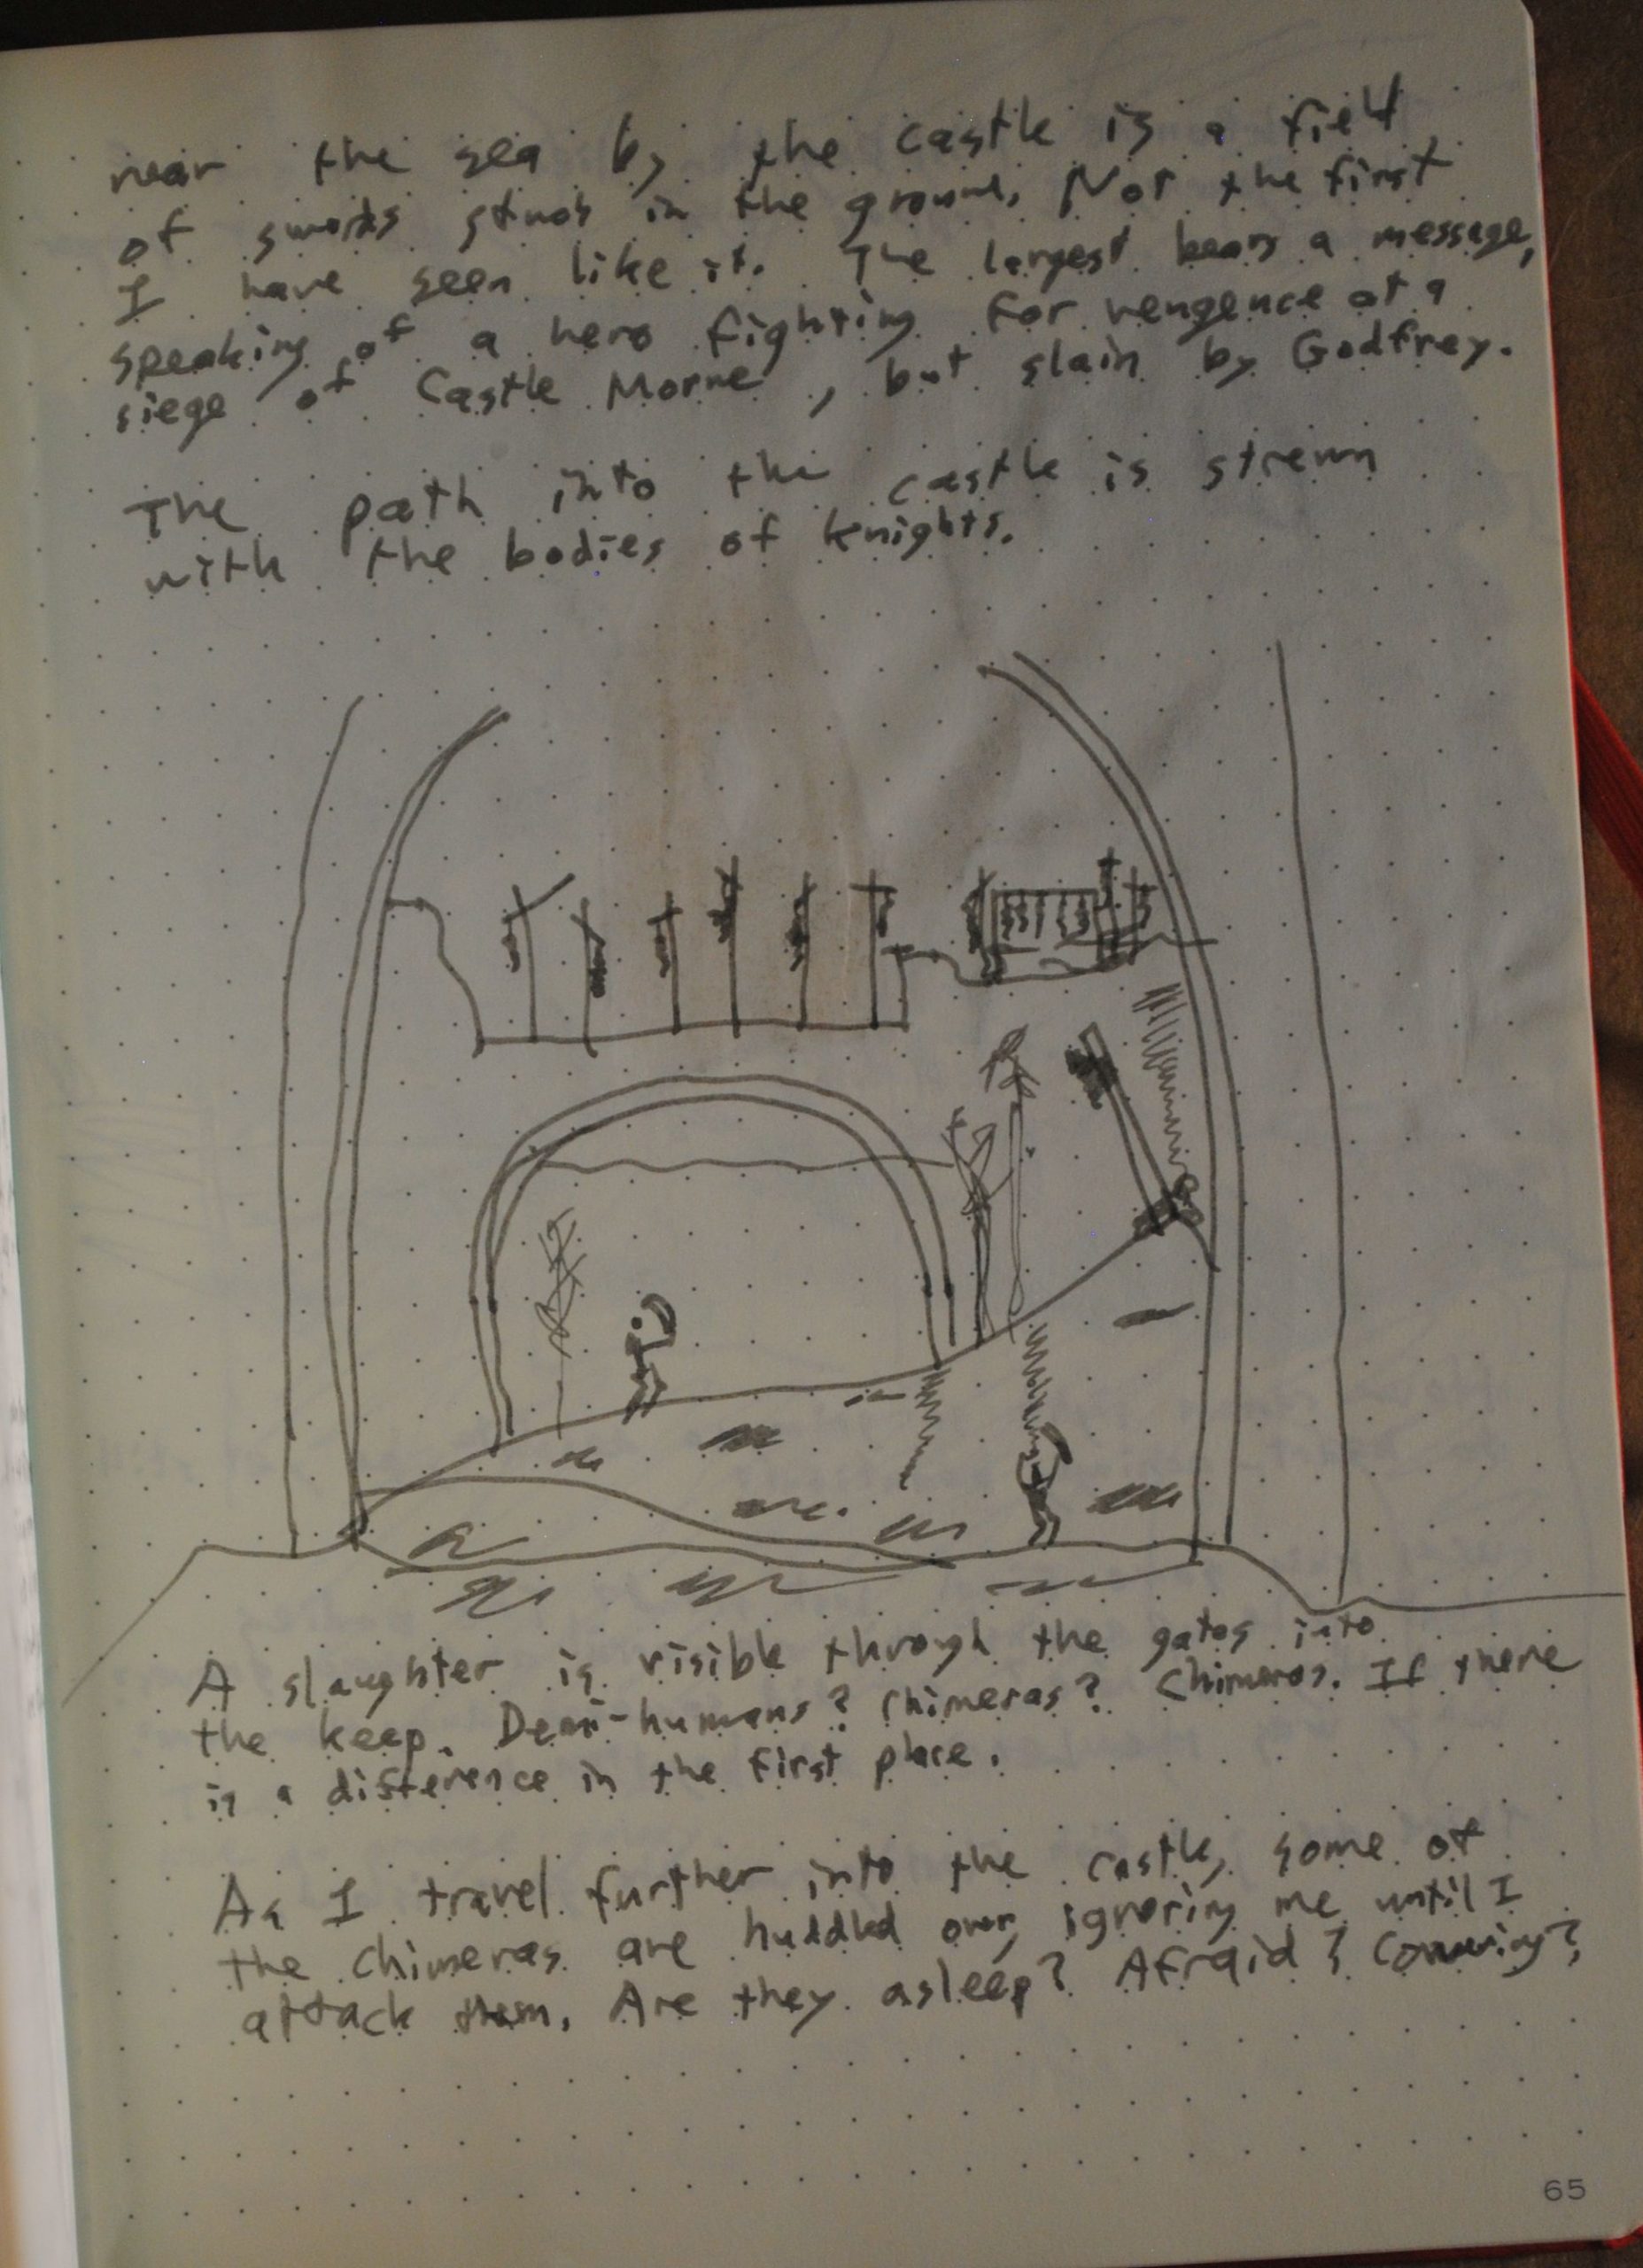 near the sea by the castle is a field
of swords stuck in the ground. Not the first
I have seen like it. The largest bears a message,
speaking of a hero fighting for vengence at a
siege of Castle Morne, but slain by Godfrey.
The path into the castle is strewn
with the bodies of knights.
A slaughter is visible through the gates into
the keep. Demi-humans? Chimeras? Chimeras. If there
is a difference in the first place.
As I travel further into the castle, some of
the chimeras are huddled over, ignoring me until I
attack them. Are they asleep? Afraid? Cowering?
65